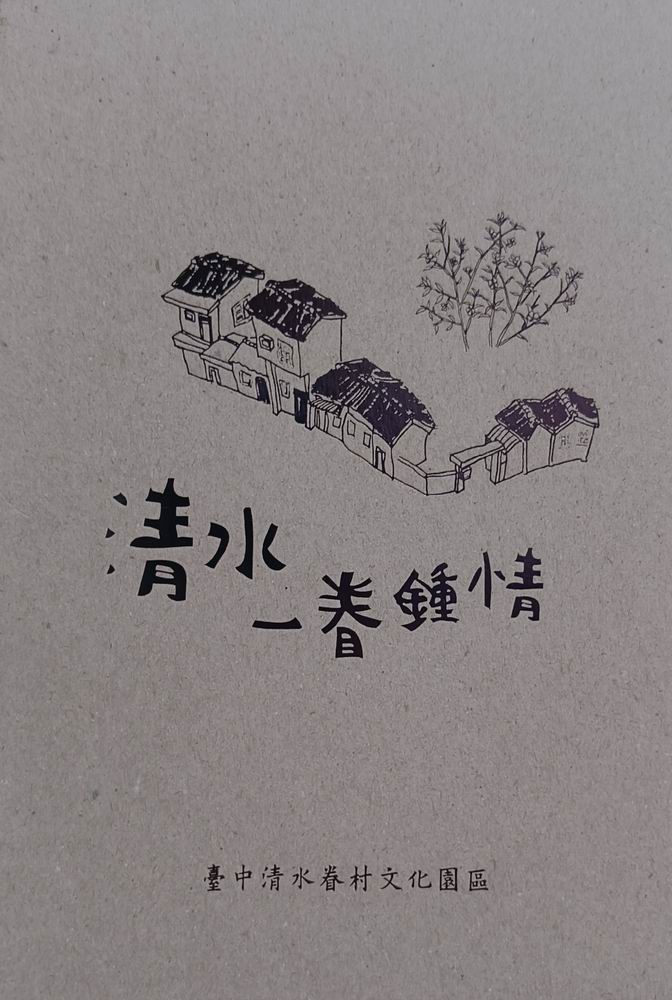 清水
一眷鍾情
臺中清水眷村文化園區